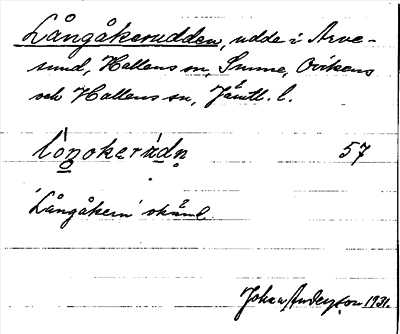 Långåkerudden, udde i Arve-
sund, Hallens sn, Sunne, Ovikens
och Hallens sn, Jämtl. l.
lòŋokerùdn̥ 57
'Långåkern' skäml
Johan Anderson 1931.